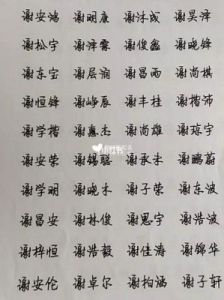 谢安鸿 谢明康 谢沐成 谢昊泽
谢松宇 谢泽霖 谢俊鑫 谢晓锋
谢东宝 谢层澜 谢昌雨 谢尚棋
谢恒锋 谢峥辰 谢丰桂 谢楷沛
谢学楷 谢嘉杰 谢尚雄 谢琼宇
谢安荣 谢锡聪 谢承末 谢鹏蔚
谢学明 谢晓丰 谢子荣 谢东波
谢昌安 谢林俊 谢思宇 谢浩波
谢梓恒 谢浩毅 谢佳海 谢锦华
谢安伦 谢卓尔 谢柏涵 谢子轩